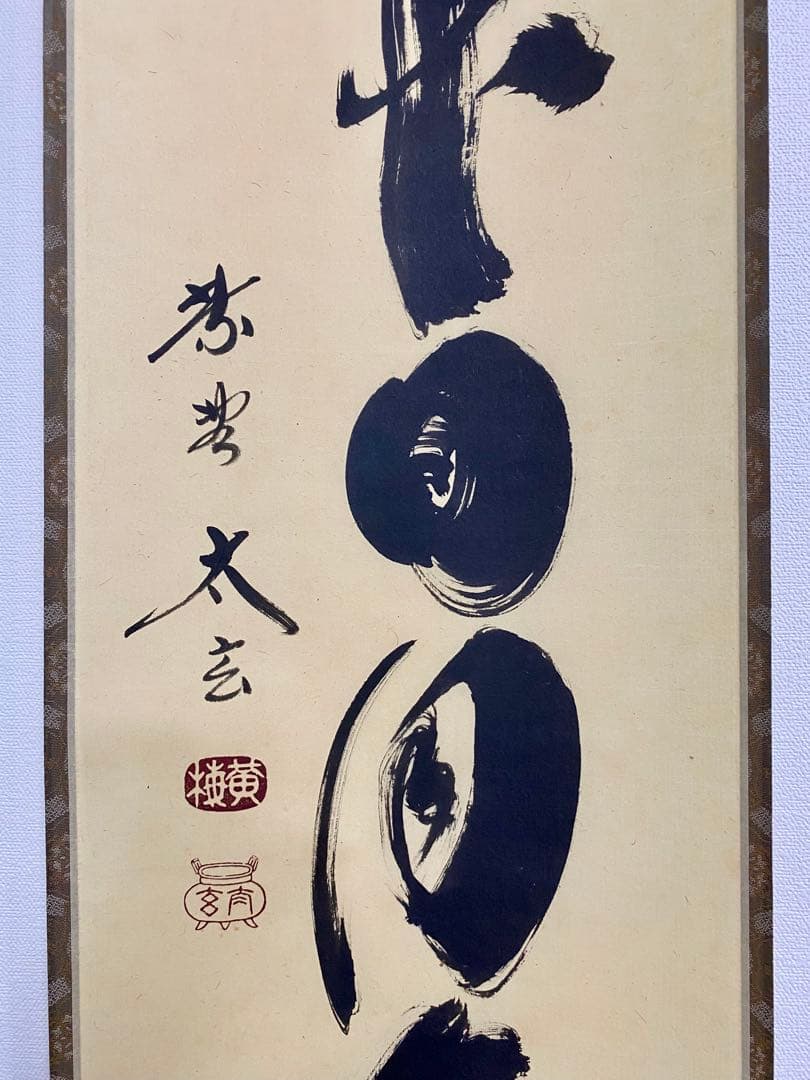 日月
紫野 太玄
黄梅